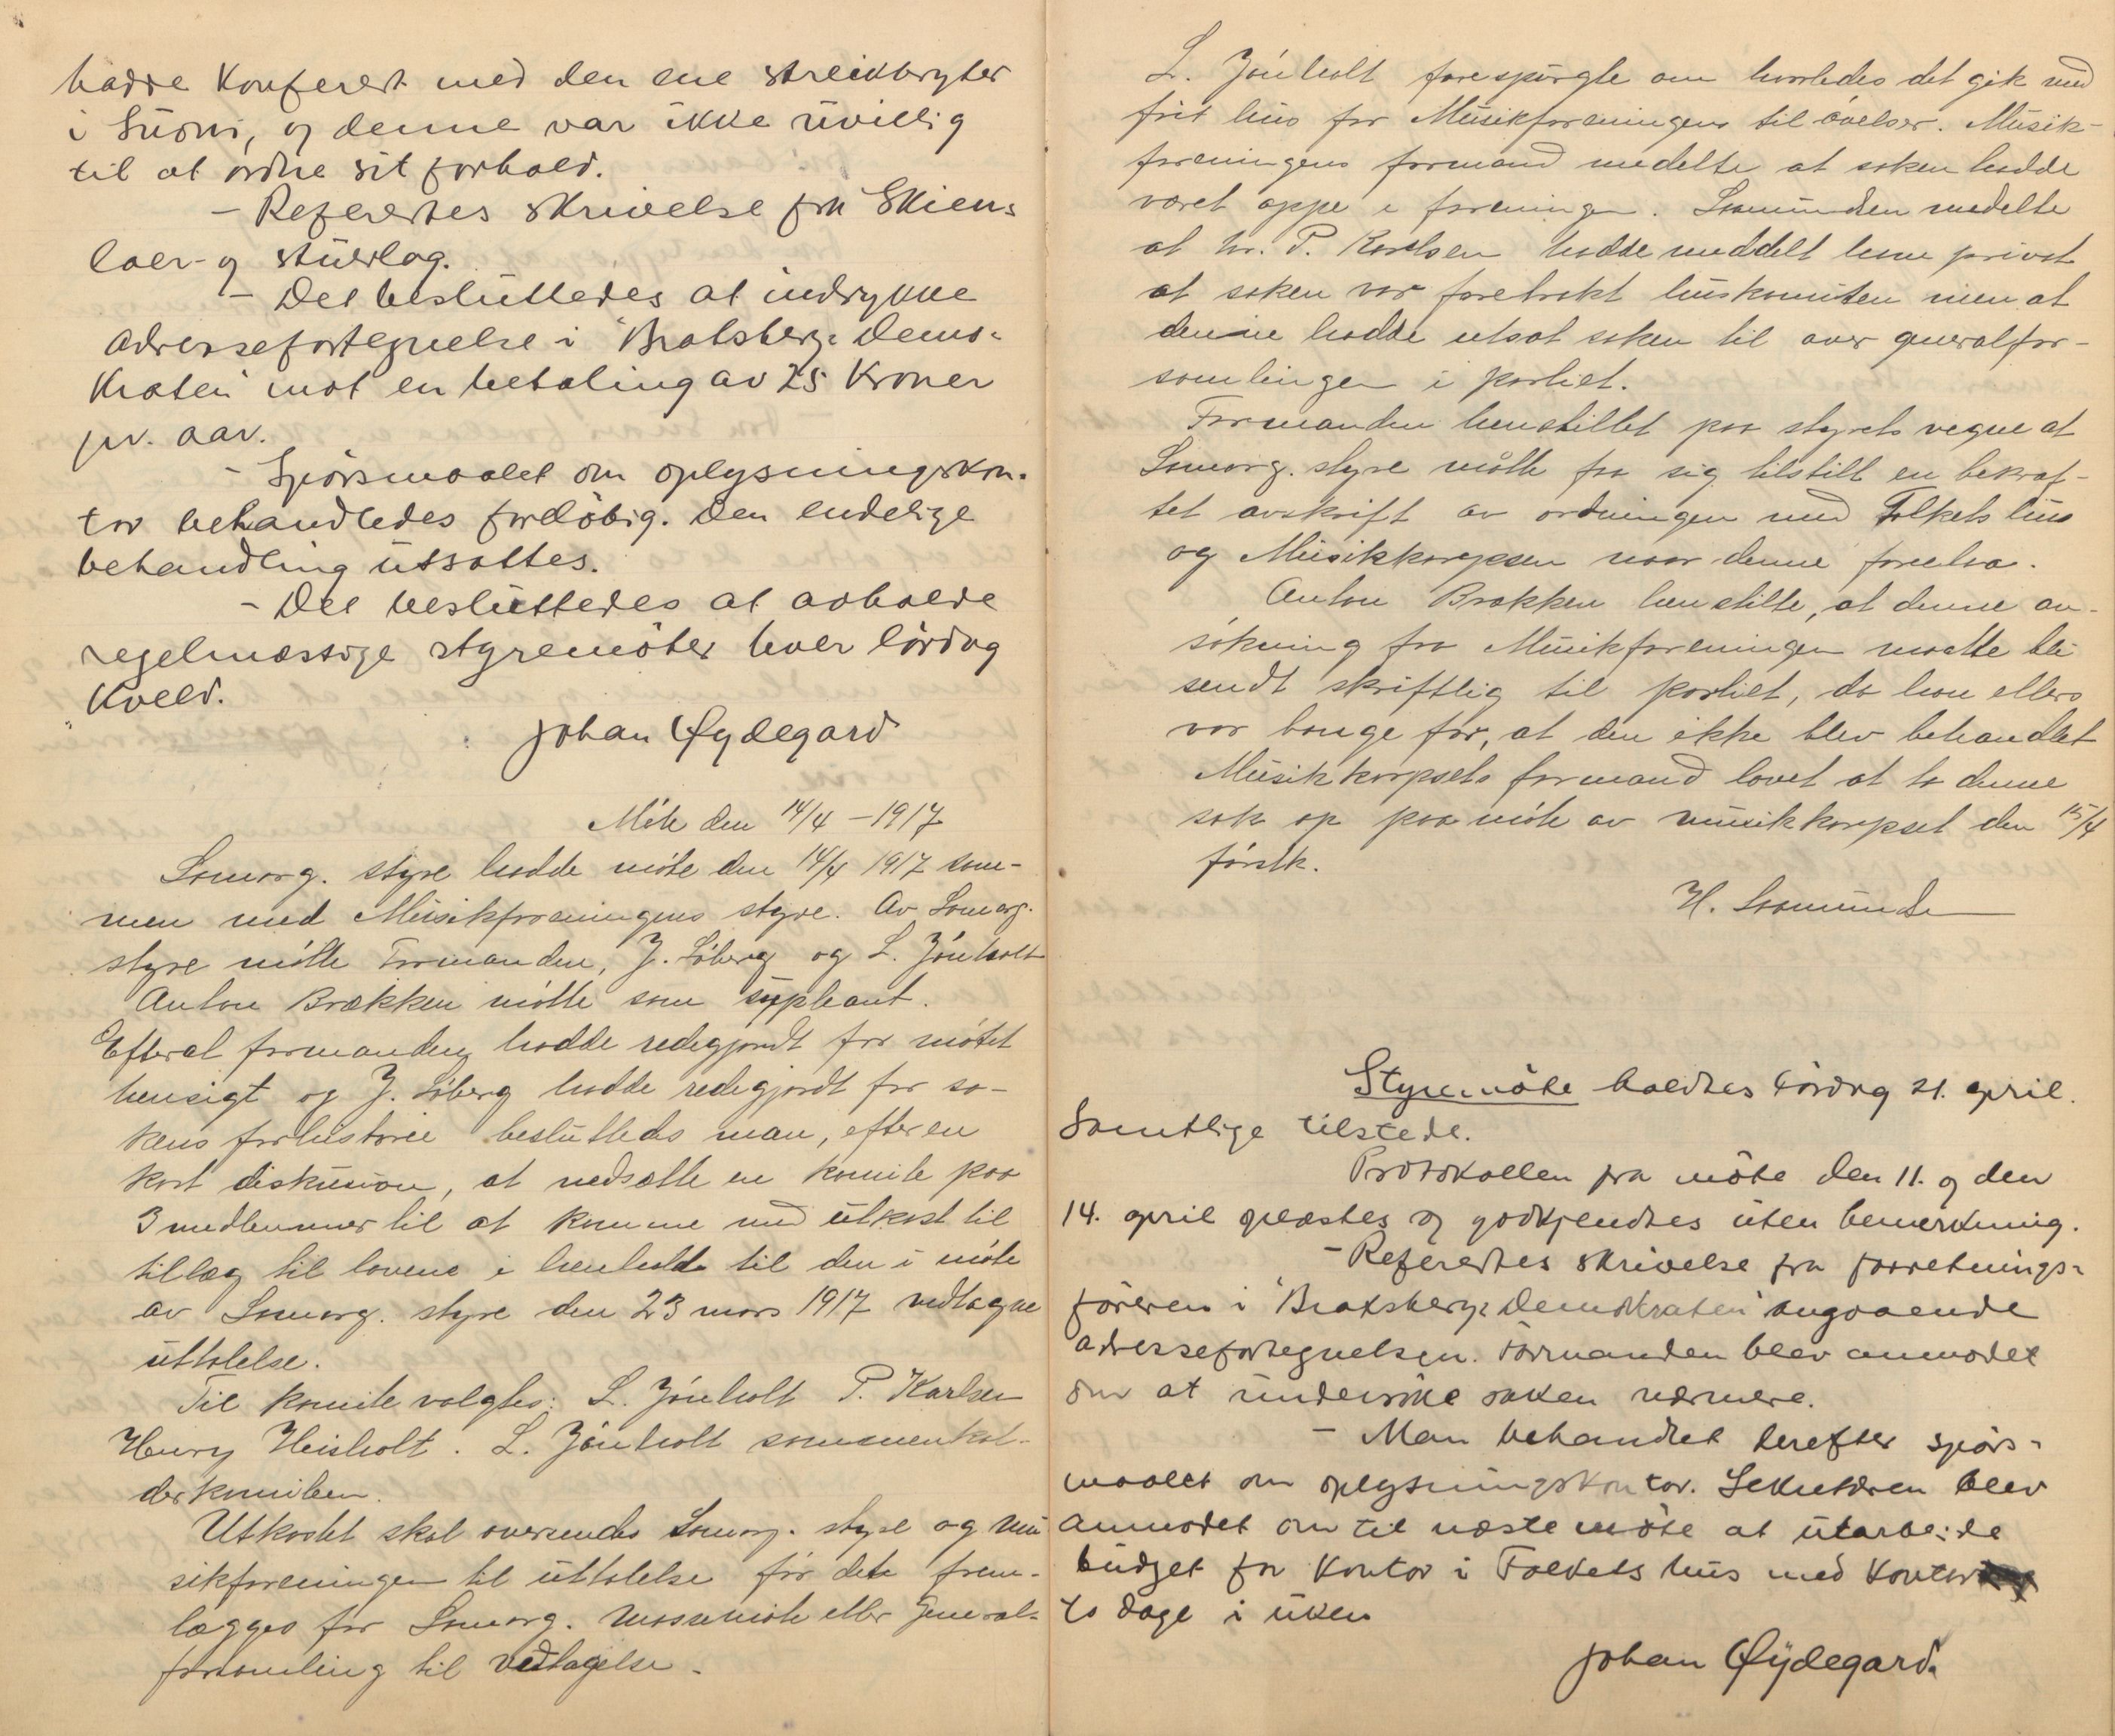 hadde konferert med den ene streikbryter
i Surni, og denne var ikke uvillig
til at ordne sit forhold.
- Refertes skrivelse fra Skiens
laer- og stuerlag.
- Det besluttedes at indrykke
adressefortegnelse i "Bratsberg-Demo-
kraten" mot en betaling av 25 kroner
pr. aar.
- Spörsmaalet om oplysningskon-
tor behandledes foreløbig. Den endelige
behandling utsattes.
- Det besluttedes at avholde
regelmæssige styremöter hver lördag
kveld.
Johan Øydegard
Möte den 14/4 - 1917
Samorg. styre hadde möte den 14/4 1917 sam-
men med Musikforeningens styre. Av Samorg.
styre mötte Formanden, J. Löberg og L. Jönholt
Anton Brækken mötte som supleant.
Efterat formanden hadde redegjordt for mötet
hensigt og J. Löberg hadde redegjordt for sa-
kens forhistorie besluttedes man, efter en
kort diskusion, at nedsætte en komite paa
3 medlemmer til at komme med utkast til
tillæg til lovene i henhold til den i möte
av Samorg. styre den 23 mars 1917 vedtagne
uttalelse.
Til komite valgtes: L. Jönholt P. Karlsen
Henry Heisholt. L. Jönholt sammenkal-
der komiteen.
Utkastet skal oversendes Samorg. styre og Mu
sikforeningen til uttalelse för dete frem-
lægges for Samorg. Massemöte eller General-
forsamling til vedtagelse.
L. Jönholt forespurgte om hvorledes det gik med
frit hus for Musikforeningens til övelser. Musik-
foreningens formand medelte at saken hadde
været oppe i foreningen. Saamunden medelte
at hr. P. Karlsen hadde meddelt ham privat
at saken var foretrakt huskomiteen men at
denne hadde utsat saken til over generalfor-
samlingen i partiet.
Formanden henstillet paa styrets vegne at
Samorg. styre måtte faa sig tilstilt en bekræf-
tet avskrift av ordningen med Folkets hus
og Musikkorpsen naar denne forelaa.
Anton Brækken henstilte, at denne an-
sökning fra Musikforeningen maatte bli
sendt skriftlig til partiet, da han ellers
var bange for, at den ikke blev behandlet
Musikkorpsets formand lovet at ta denne
sak op paa möte av musikkorpset den 15/4
förstk.
H. Saamunden
Styremöte holdtes Lördag 21. april.
Samtlige tilstede.
Protokollen fra möte den 11. og den
14. april oplæstes og godkjendtes uten bemerkning.
- Refertes skrivelse fra forretnings-
föreren i "Bratsberg-Demokraten" angaaende
adressefortegnelsen. Formanden blev anmodet
om at undersöke saken nærmere.
- Man behandlet derefter spörs-
maalet om oplysningskontor. Sekretæren blev
anmodet om til næste möte at utarbeide
budget for kontor i Folkets hus med kontor
to dage i uken
Johan Øydegard.